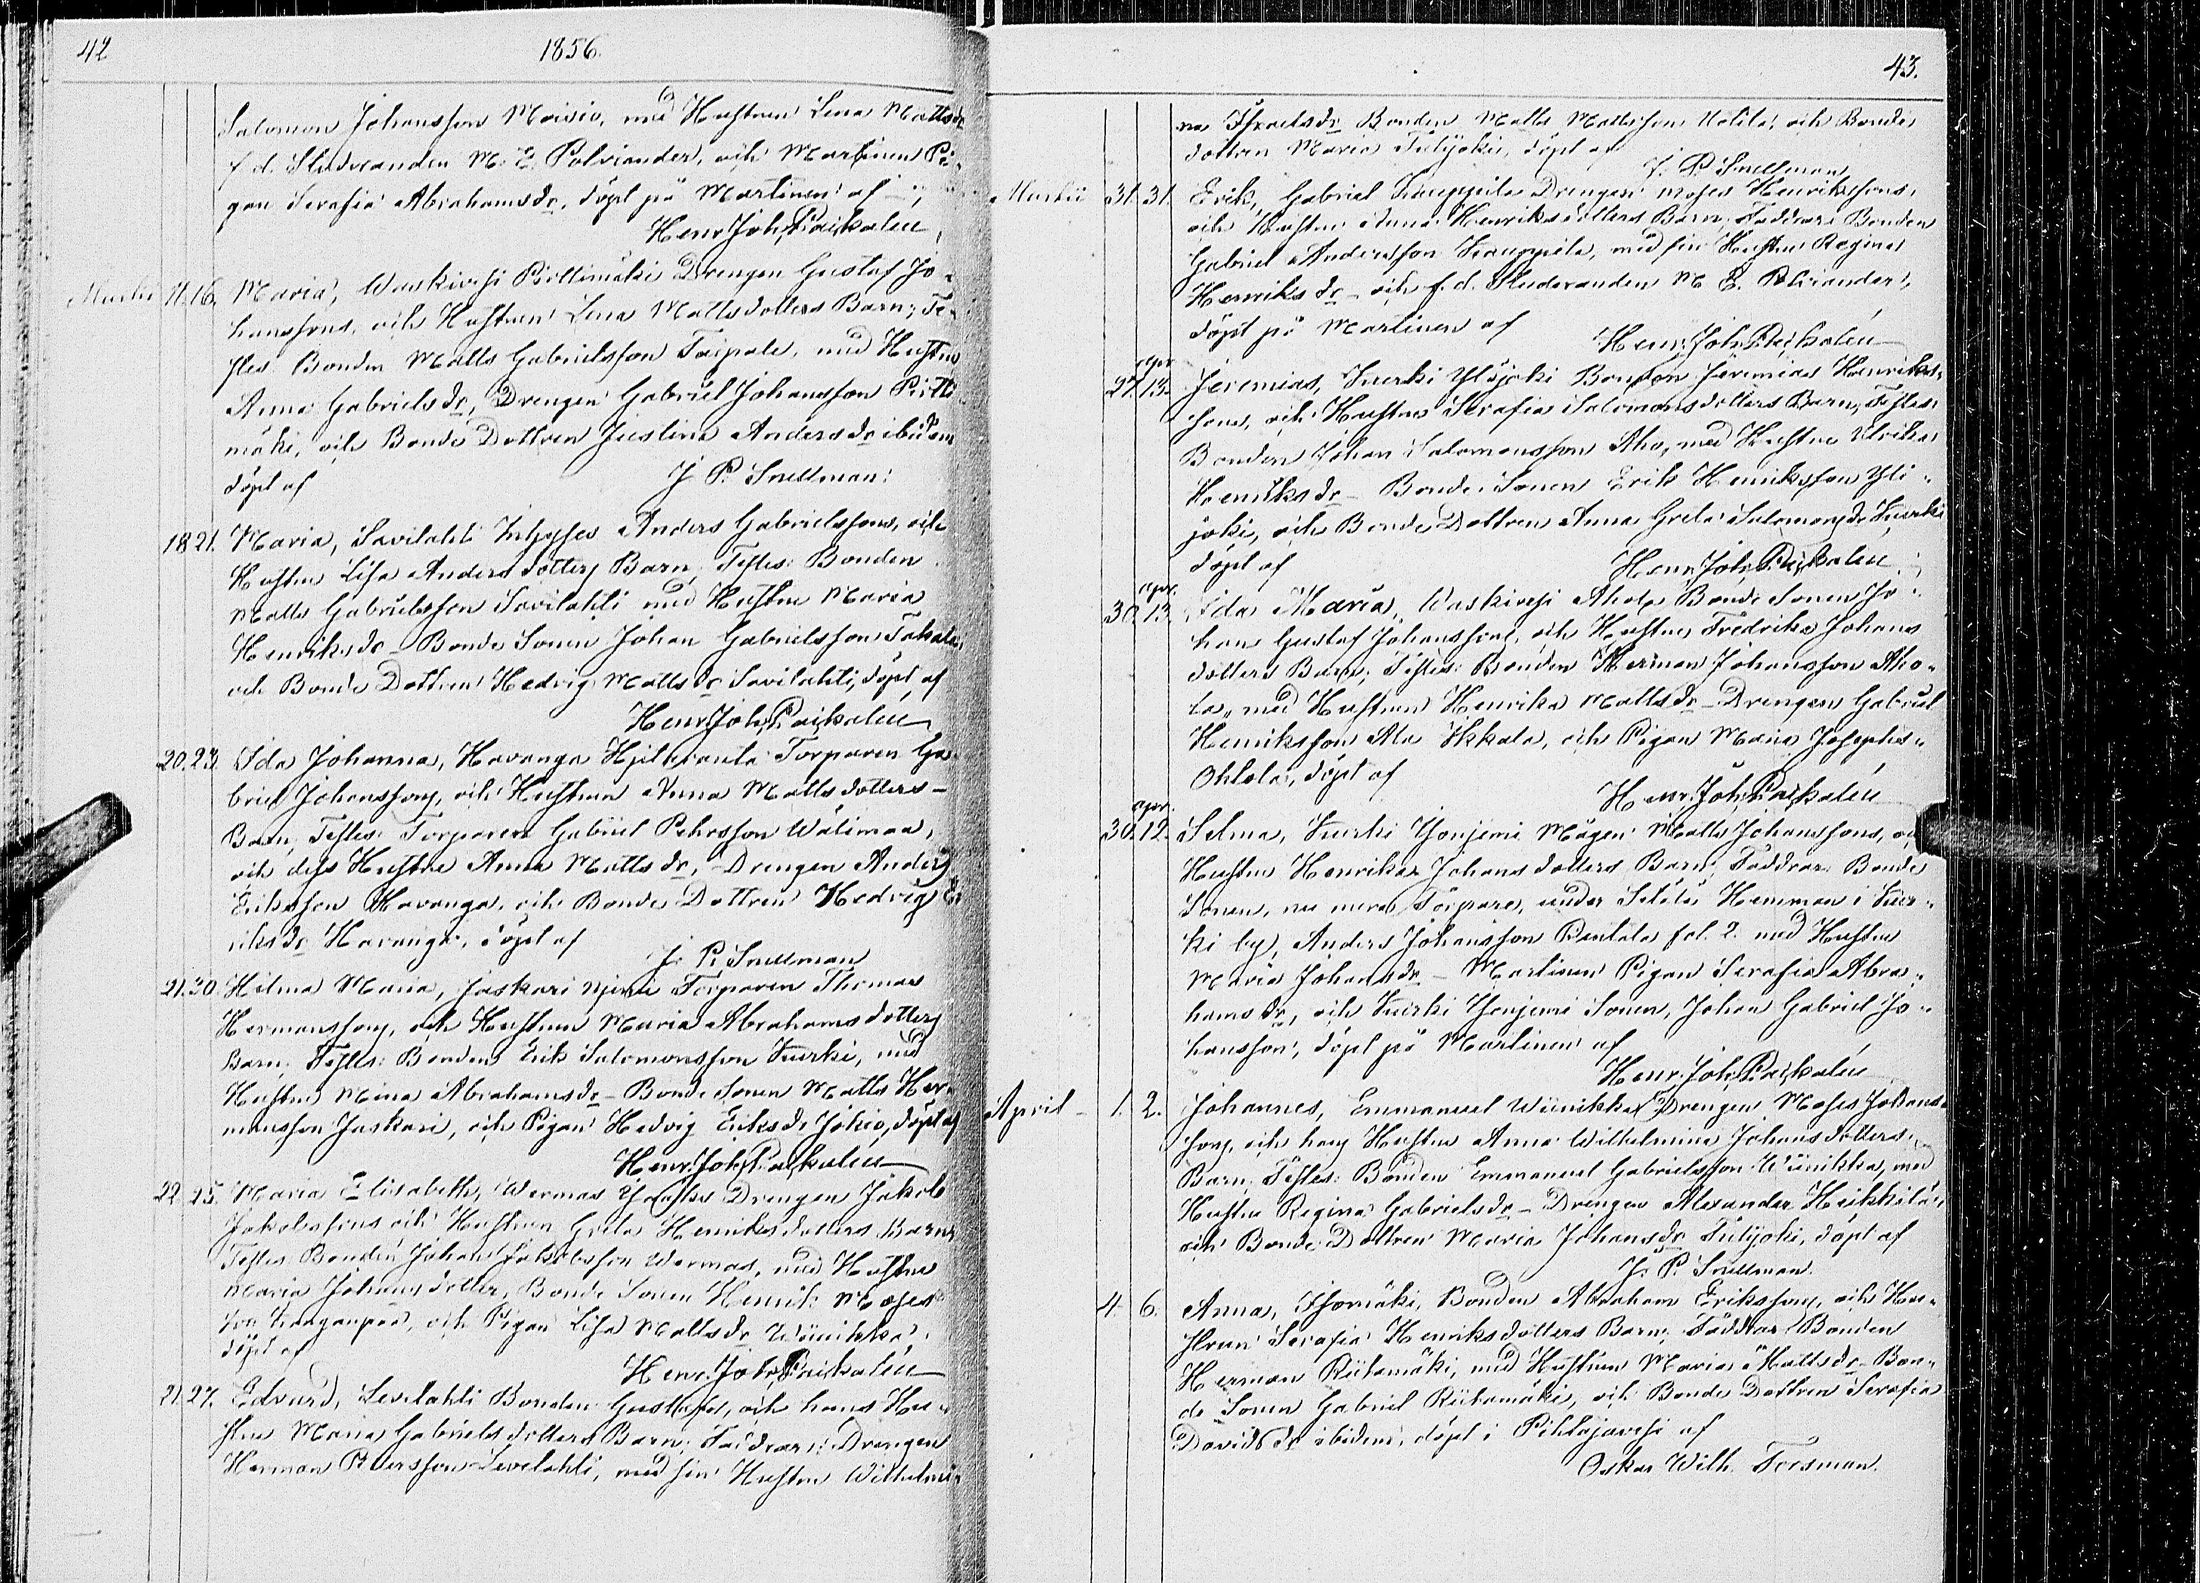 42
1856.
Salomon Johansson Moisio, med Hustrun Lena Mattsdr
f. d. Studeranden M. E. Polviander, och Martinen Pi-
gan Serafia Abrahamsdr, döpt på Martinen af
Henr. Joh. Paikalén
Martii 11. 16. Maria, Waskivesi Drengen Gustaf Jo-
hanssons, och Hustrun Lena Mattsdotters Barn; Te-
stes Bonden Matts Gabrielsson Taipale, med Hustru
Anna Gabrielsdr, Drengen Gabriel Johansson
mäki, och Bonde Dottren Justina Andersdr ibidem
döpt af
J. P. Snellman.
18. 21. Maria, Savilahti Inhyses Anders Gabrielssons, och
Hustru Lisa Anders dotters Barn, Testes: Bonden
Matts Gabrielsson Savilahti med Hustru Maria
Henriksdr - Bonde Sonen Johan Gabrielsson Tokola,
och Bonde Dottren Hedvig Mattsdr Savilahti, döpt af
Henr. Joh. Paikalén
20. 23. Ida Johanna, Havanga Torparen Ga-
briel Johanssons, och Hustrun Anna Matts dotters
Barn; Testes: Torparen Gabriel Pehrsson Wälimaa,
och dess Hustru Anna Mattsdr, - Drengen Anders
Eriksson Havanga, och Bonde Dottren Hedvig E-
riksdr Havanga, döpt af
J. P. Snellman
21. 30. Hilma Maria, Jaskari Torparen Thomas
Hermanssons, och Hustrun Maria Abrahams dotters
Barn; Testes: Bonden Erik Salomonsson Kurki, med
Hustru Mina Abrahamsdr - Bonde Sonen Matts Her-
mansson Jaskari, och Pigan Hedvig Eriksdr Jokio, döpt af
Henr. Joh. Paikalén
22. 25. Maria Elisabeth, Wermas Drengen Jakob
Jakobssons och Hustrun Greta Henriksdotters Barn;
Testes Bonden Johan Jakobsson Wermas, med Hustru
Maria Johansdotter, Bonde Sonen Henrik Moses-
son och Pigan Lisa Mattsdr Wiinikka,
döpt af
Henr. Joh. Paikalén
21. 27. Edvard, Levelahti Bonden Gustaf och hans Hu-
stru Maria Gabriels dotters Barn; Faddrar: Drengen
Herman Petersson Levelahti, med sin Hustru Wilhelmi-
43.
na Israelsdr Bonden Matts Mattsson och Bonde
dottren Maria döpt af
J. P. Snellman
Martii 31. 31. Erik, Gabriel Kauppila Drengen Moses Henrikssons,
och Hustru Anna Henriksdotters Barn; Faddrar: Bonden
Gabriel Andersson Kauppila, med sin Hustru Regina
Henriksdr - och f. d. Studeranden M. E. Polviander,
döpt på Martinen af
Henr. Joh. Paikalén
apr.
27. 13. Jeremias, Kurki Ylijoki Bonden Jeremias Henriks-
sons, och Hustrus Serafia Salomonsdotters Barn; Testes
Bonden Johan Salomonsson Aho, med Hustru Ulrika
Henriksdr - Bonde Sonen Erik Henriksson Yli-
joki, och Bonde Dottren Anna Greta Salomonsdr Kurki
döpt af
Henr. Joh. Paikalén
apr.
30. 13. Ida Maria, Waskivesi Ahola Bonde Sonen Jo-
han Gustaf Johanssons, och Hustrus Fredrika Johans
dotters Barn; Testes: Bonden Herman Johansson Aho-
la, med Hustrun Henrika Mattsdr - Drengen Gabriel
Henriksson Ala Ikkala, och Pigan Maria Josephsdr
döpt af
Henr. Joh. Paikalén
apr.
30. 12. Selma, Kurki Mågen Matts Johanssons, och
Hustrus Henrika Johans dotters Barn; Faddrar: Bonde
Sonen, nu mera Torpare, under Hemman i Kur-
ki by, Anders Johansson Rantala fol. 2. med Hustru
Maria Johansdr - Martinen Pigan Serafia Abra-
hamsdr, och Kurki Sonen, Johan Gabriel Jo-
hansson, döpt på Martinen af
Henr. Joh. Paikalén
April - 1. 2. Johannes, Emmanuel Wiinikka Drengen Moses Johans-
sons, och hans Hustru Anna Wilhelmina Johansdotters
Barn; Testes: Bonden Emmanuel Gabrielsson Wiinikka, med
Hustru Regina Gabrielsdr - Drengen Alexander Heikkilä,
och Bonde Dottren Maria Johansdr döpt af
J. P. Snellman.
4. 6. Anna, Isomäki, Bonden Abraham Erikssons, och Hu-
struns Serafia Henriksdotters Barn; Faddrar: Bonden
Herman Riihimäki, med Hustrun Maria Mattsdr - Bon-
de Sonen Gabriel Riihimäki, och Bonde Dottren Serafia
Davidsdr ibidem, döpt i Pihlajavesi af
Oskar Wilh. Forsman.